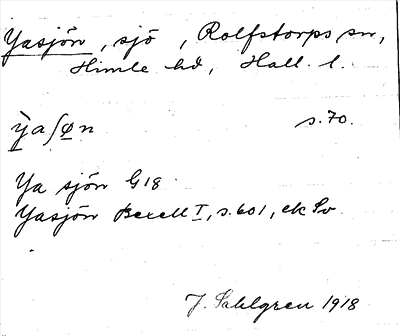 Yasjön, sjö, Rolfstorps sn,
Himle hd, Hall. l.
ỳ̱aʃø̱n s.70.
Ya sjön G18
Yasjön Bexell I, s.601, ek Sv
J. Sahlgren 1918